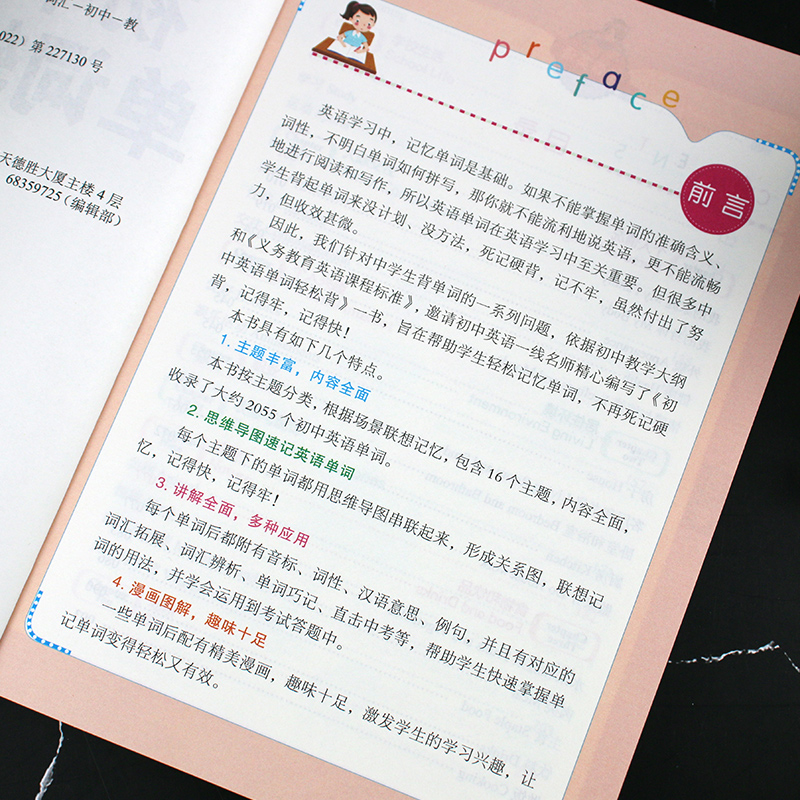 词汇－初中－教
022）第 227130 号
天德胜大厦主楼 4 层
68359725（编辑部）
preface
前言
英语学习中，记忆单词是基础。如果不能掌握单词的准确含义、
词性，不明白单词如何拼写，那你就不能流利地说英语，更不能流畅
地进行阅读和写作，所以英语单词在英语学习中至关重要。但很多中
学生背起单词来没计划、没方法，死记硬背，记不牢，虽然付出了努
力，但收效甚微。
因此，我们针对中学生背单词的一系列问题，依据初中教学大纲
和《义务教育英语课程标准》，邀请初中英语一线名师精心编写了《初
中英语单词轻松背》一书，旨在帮助学生轻松记忆单词，不再死记硬
背，记得牢，记得快！
本书具有如下几个特点。
1. 主题丰富，内容全面
本书按主题分类，根据场景联想记忆，包含 16 个主题，内容全面，
收录了大约 2055 个初中英语单词。
2. 思维导图速记英语单词
每个主题下的单词都用思维导图串联起来，形成关系图，联想记
忆，记得快，记得牢！
3. 讲解全面，多种应用
每个单词后都附有音标、词性、汉语意思、例句，并且有对应的
词汇拓展、词汇辨析、单词巧记、直击中考等，帮助学生快速掌握单
词的用法，并学会运用到考试答题中。
4. 漫画图解，趣味十足
一些单词后配有精美漫画，趣味十足，激发学生的学习兴趣，让
记单词变得轻松又有效。